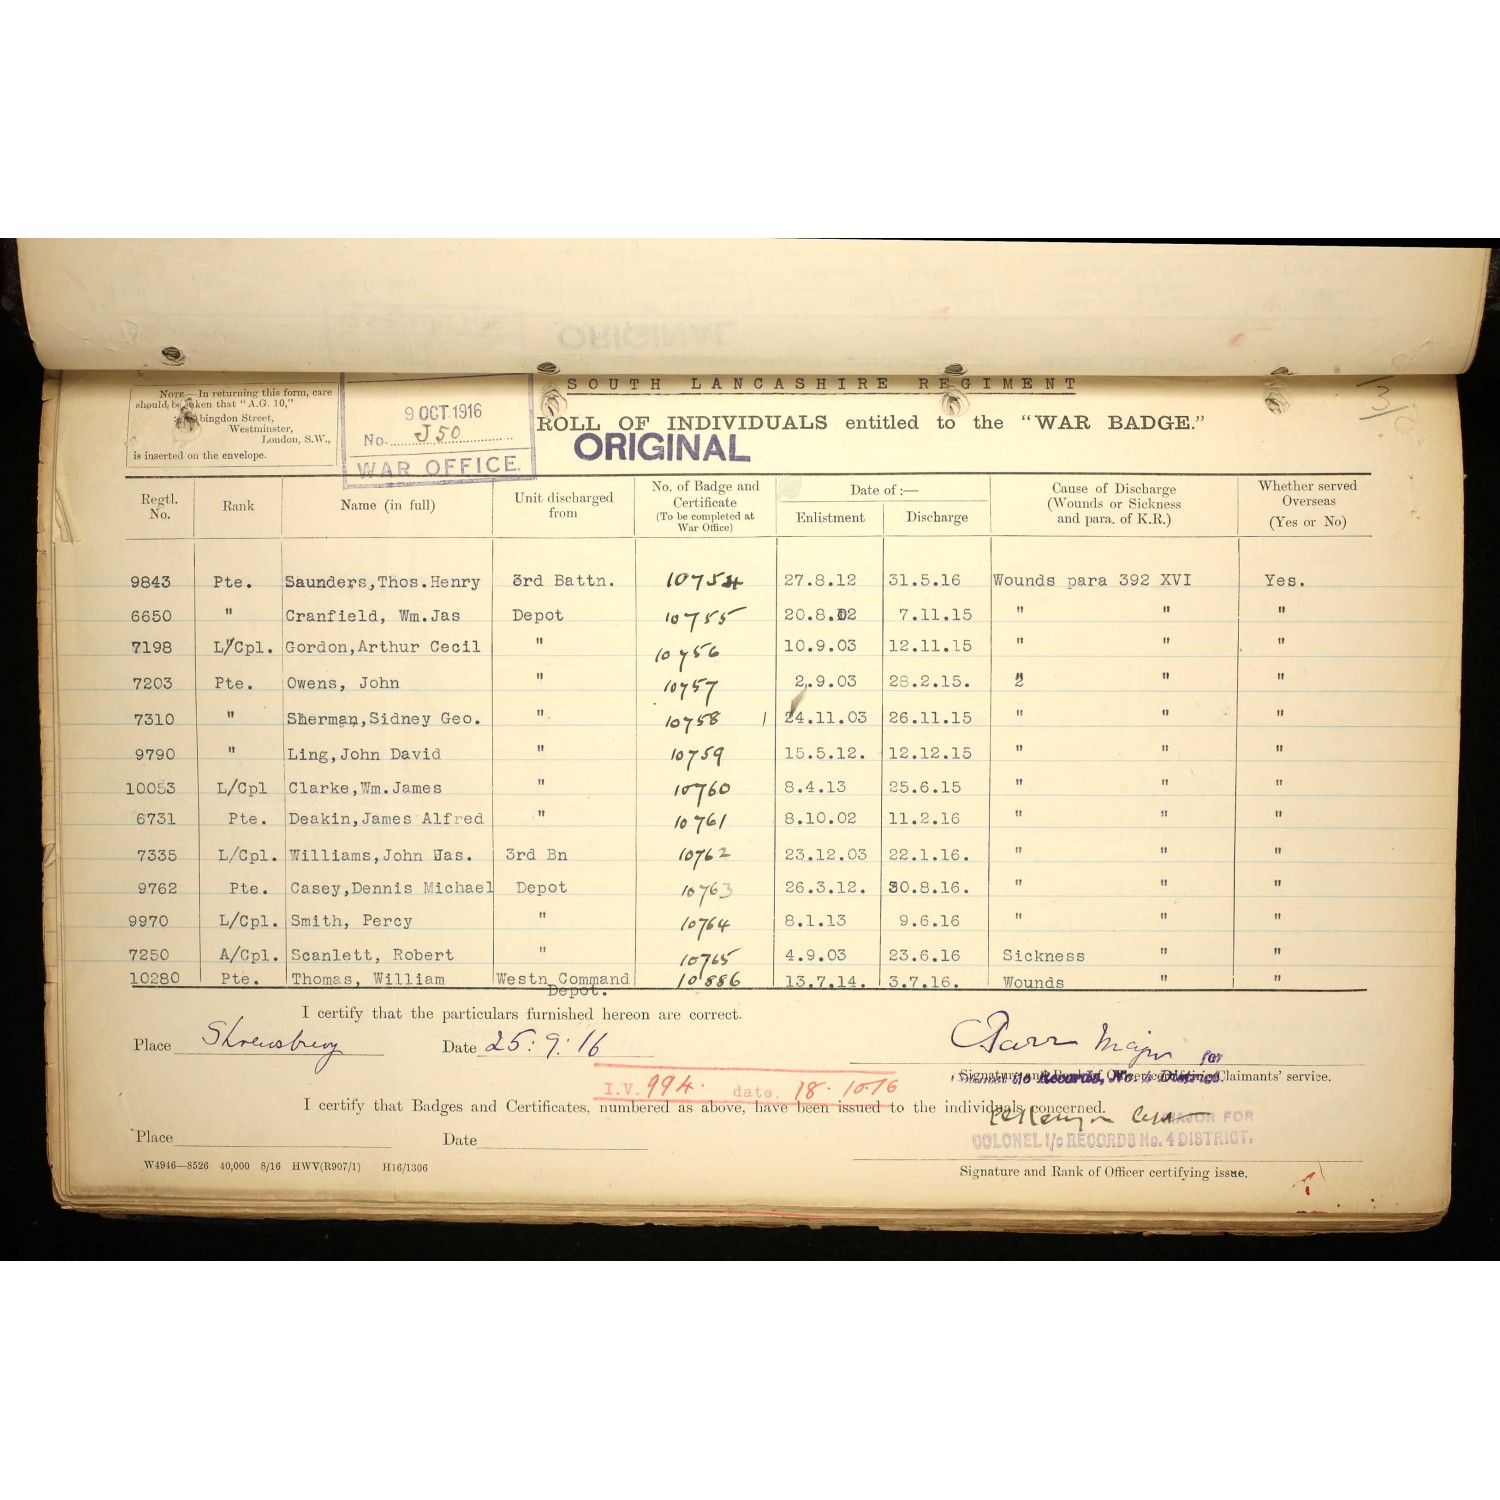 SOUTH LANCASHIRE REGIMENT
NOTE.—In returning this form, care
should be taken that "A.G. 10,"
Abingdon Street,
Westminster,
London, S.W.,
is inserted on the envelope.
9 OCT. 1916
No. J50
WAR OFFICE.
ROLL OF INDIVIDUALS entitled to the "WAR BADGE."
ORIGINAL
Regtl. No. Rank Name (in full) Unit discharged from No. of Badge and Certificate (To be completed at War Office) Date of :— Enlistment Discharge Cause of Discharge (Wounds or Sickness and para. of K.R.) Whether served Overseas (Yes or No)
9843 Pte. Saunders,Thos.Henry 3rd Battn. 10754 27.8.12 31.5.16 Wounds para 392 XVI Yes.
6650 " Cranfield, Wm.Jas Depot 10755 20.8.02 7.11.15 " " "
7198 L/Cpl. Gordon,Arthur Cecil " 10756 10.9.03 12.11.15 " " "
7203 Pte. Owens, John " 10757 2.9.03 28.2.15. " " "
7310 " Sherman,Sidney Geo. " 10758 24.11.03 26.11.15 " " "
9790 " Ling,John David " 10759 15.5.12. 12.12.15 " " "
10053 L/Cpl Clarke,Wm.James " 10760 8.4.13 25.6.15 " " "
6731 Pte. Deakin,James Alfred " 10761 8.10.02 11.2.16 " " "
7335 L/Cpl. Williams,John Jas. 3rd Bn 10762 23.12.03 22.1.16. " " "
9762 Pte. Casey,Dennis Michael Depot 10763 26.3.12. 30.8.16. " " "
9970 L/Cpl. Smith, Percy " 10764 8.1.13 9.6.16 " " "
7250 A/Cpl. Scanlett, Robert " 10765 4.9.03 23.6.16 Sickness " "
10280 Pte. Thomas, William Westn Command Depot. 10886 13.7.14. 3.7.16. Wounds " "
I certify that the particulars furnished hereon are correct.
Place Shrewsbury Date 25:9:16
Major for
Signature and Rank of Officer certifying Claimants' service.
Records, No. 4 District.
I.V. 994. date. 18.10.16
I certify that Badges and Certificates, numbered as above, have been issued to the individuals concerned.
MAJOR FOR
COLONEL I/c RECORDS No. 4 DISTRICT.
Place Date
Signature and Rank of Officer certifying issue.
W4946—8526 40,000 8/16 HWV(R907/1) H16/1306